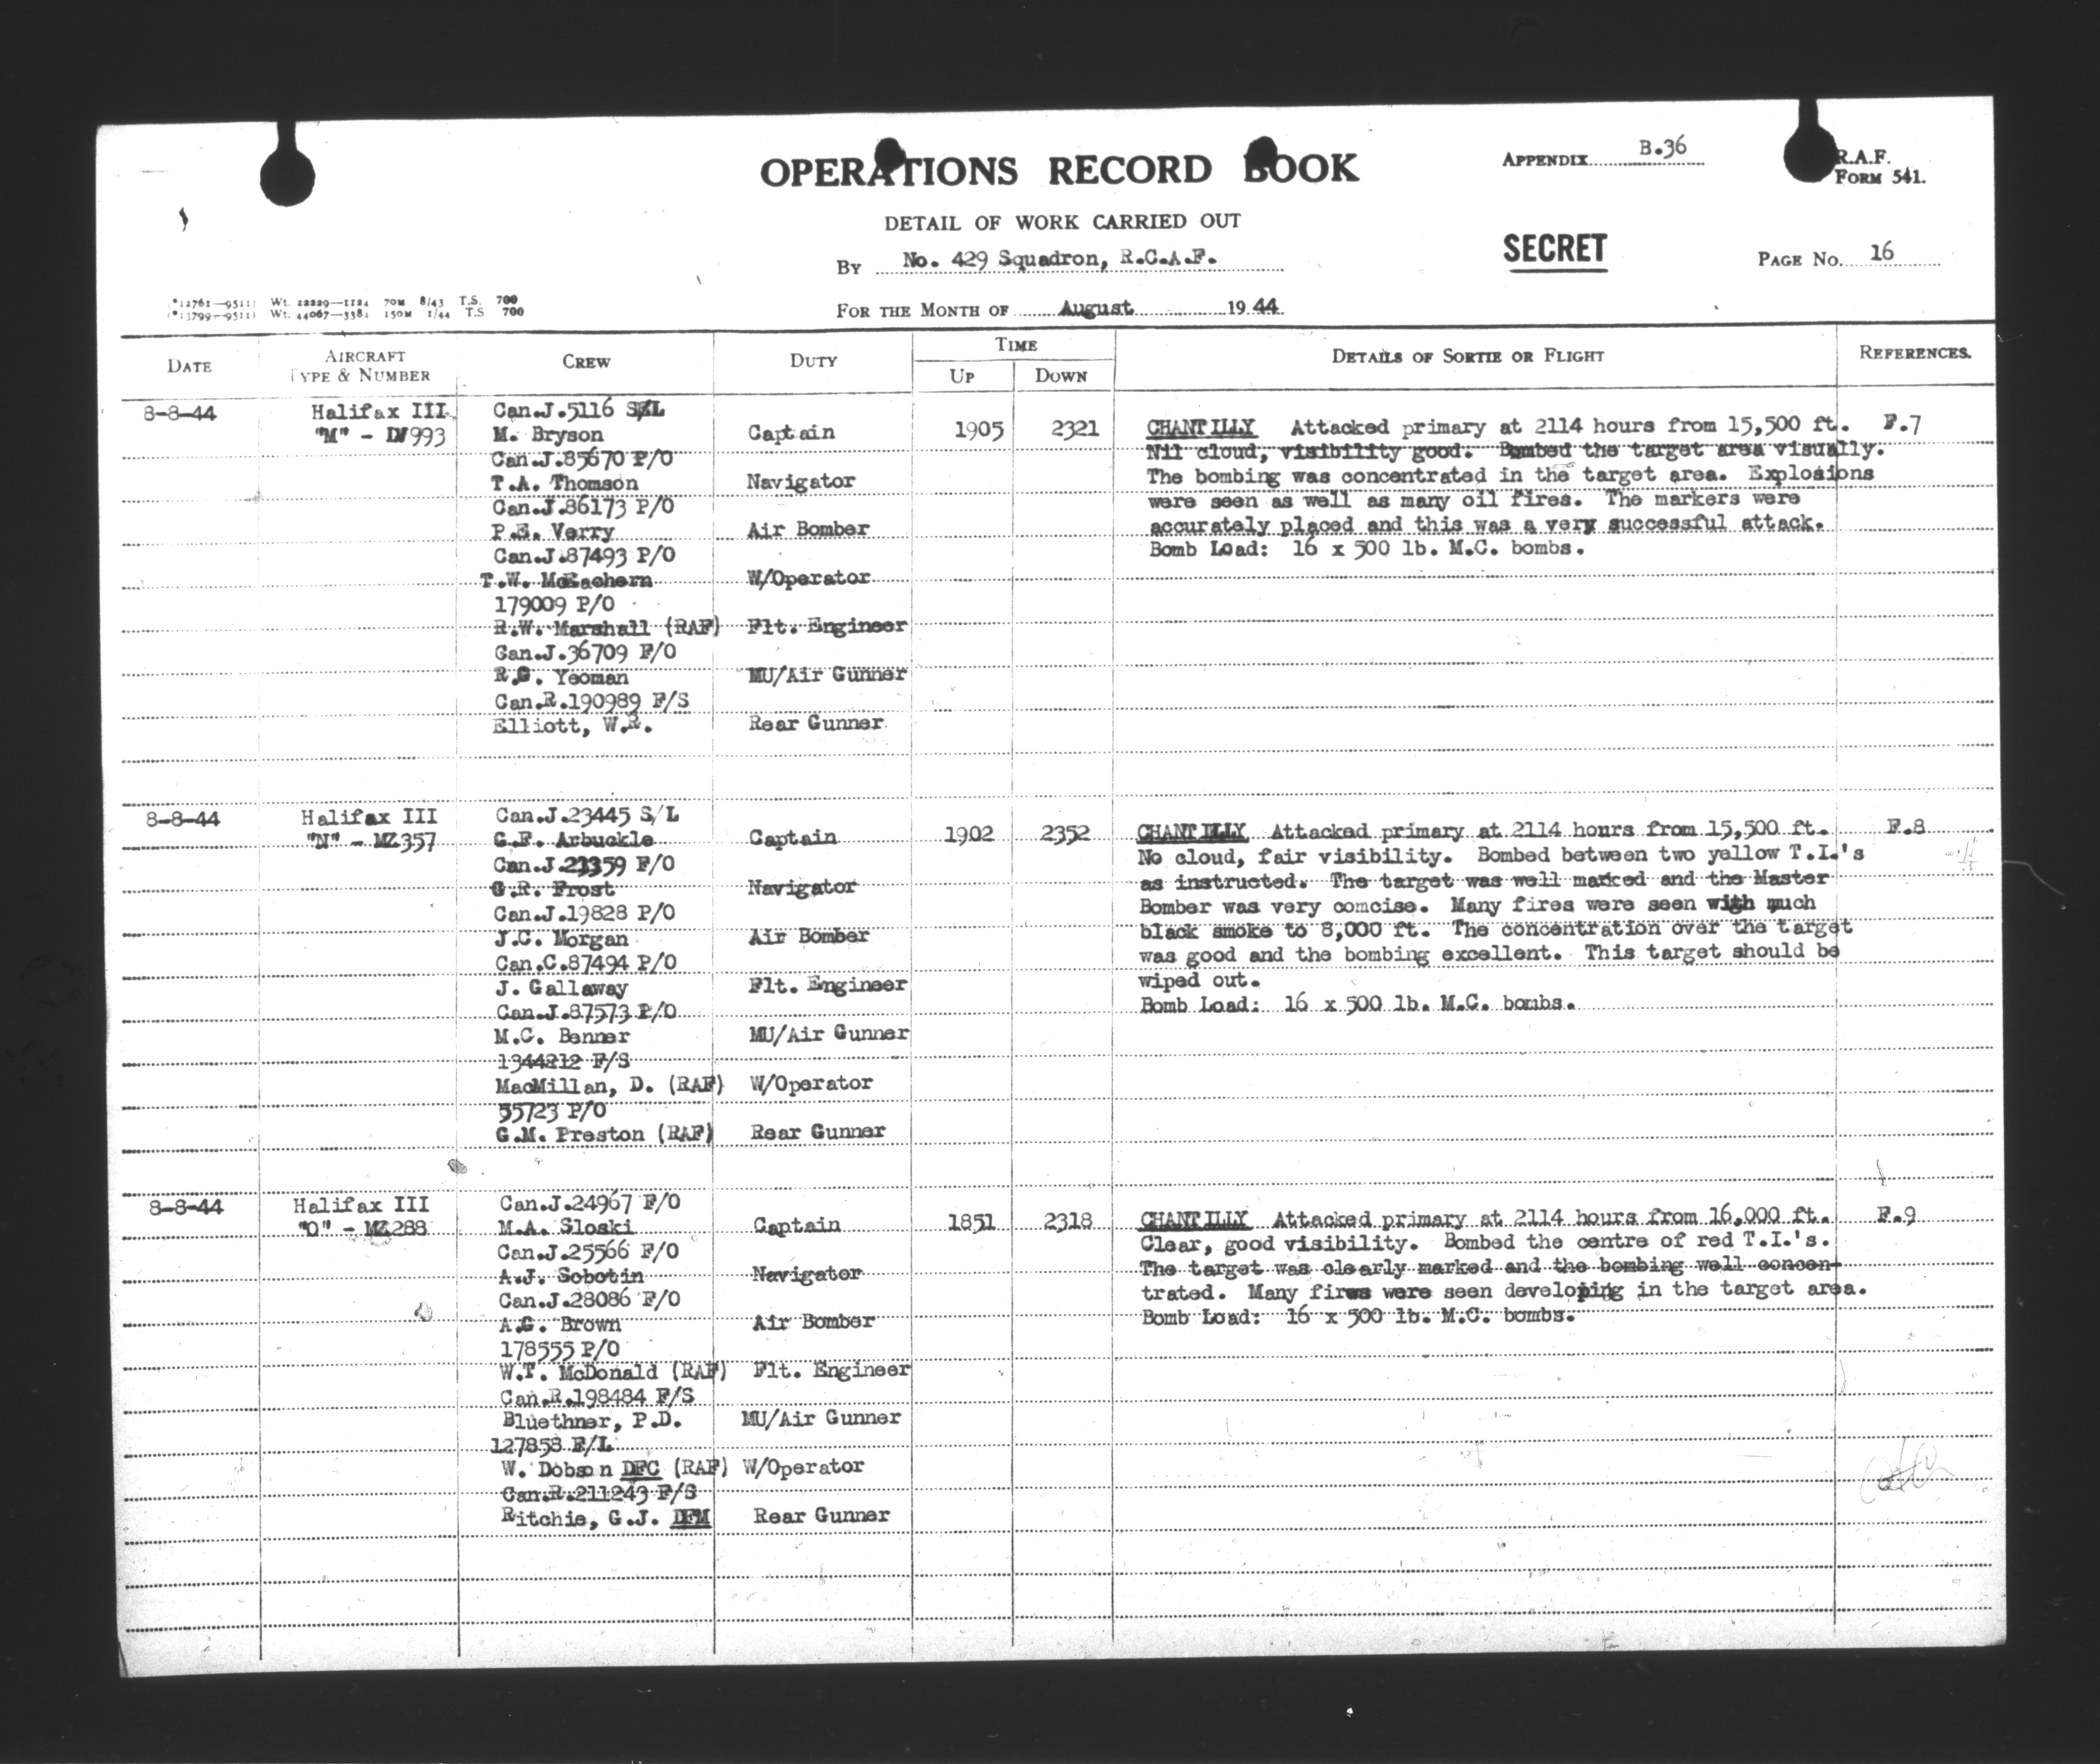 OPERATIONS RECORD BOOK
APPENDIX B.36
R.A.F.
FORM 541.
DETAIL OF WORK CARRIED OUT
By No. 429 Squadron, R.C.A.F.
SECRET
PAGE No. 16
(*12761—9511) Wt. 22229—1124 70M 8/43 T.S. 700
(*13799—9511) Wt. 44067—3384 150M 1/44 T.S 700
FOR THE MONTH OF August 1944
DATE
AIRCRAFT
TYPE & NUMBER
CREW
DUTY
TIME
UP
DOWN
DETAILS OF SORTIE OR FLIGHT
REFERENCES.
8-8-44
Halifax III
"M" - LV993
Can.J.5116 S/L
M. Bryson Captain 1905 2321
Can.J.85670 P/O
T.A. Thomson Navigator
Can.J.86173 P/O
P.E. Verry Air Bomber
Can.J.87493 P/O
T.W. McEachern W/Operator
179009 P/O
R.W. Marshall (RAF) Flt. Engineer
Can.J.36709 F/O
R.G. Yeoman MU/Air Gunner
Can.R.190989 F/S
Elliott, W.R. Rear Gunner
CHANTILLY Attacked primary at 2114 hours from 15,500 ft. F.7
Nil cloud, visibility good. Bombed the target area visually.
The bombing was concentrated in the target area. Explosions
were seen as well as many oil fires. The markers were
accurately placed and this was a very successful attack.
Bomb Load: 16 x 500 lb. M.C. bombs.
8-8-44
Halifax III
"N" - MZ357
Can.J.23445 S/L
G.F. Arbuckle Captain 1902 2352
Can.J.23359 F/O
G.R. Frost Navigator
Can.J.19828 P/O
J.C. Morgan Air Bomber
Can.C.87494 P/O
J. Gallaway Flt. Engineer
Can.J.87573 P/O
M.C. Benner MU/Air Gunner
1344212 F/S
MacMillan, D. (RAF) W/Operator
55723 P/O
G.M. Preston (RAF) Rear Gunner
CHANTILLY Attacked primary at 2114 hours from 15,500 ft. F.8
No cloud, fair visibility. Bombed between two yellow T.I.'s
as instructed. The target was well marked and the Master
Bomber was very comcise. Many fires were seen with much
black smoke to 8,000 ft. The concentration over the target
was good and the bombing excellent. This target should be
wiped out.
Bomb Load: 16 x 500 lb. M.C. bombs.
8-8-44
Halifax III
"O" - MZ288
Can.J.24967 F/O
M.A. Sloski Captain 1851 2318
Can.J.25566 F/O
A.J. Sobotin Navigator
Can.J.28086 F/O
A.G. Brown Air Bomber
178555 P/O
W.T. McDonald (RAF) Flt. Engineer
Can.R.198484 F/S
Bluethner, P.D. MU/Air Gunner
127858 F/L
W. Dobson DFC (RAF) W/Operator
Can.R.211243 F/S
Ritchie, G.J. DFM Rear Gunner
CHANTILLY Attacked primary at 2114 hours from 16,000 ft. F.9
Clear, good visibility. Bombed the centre of red T.I.'s.
The target was clearly marked and the bombing well concen-
trated. Many fires were seen developing in the target area.
Bomb Load: 16 x 500 lb. M.C. bombs.